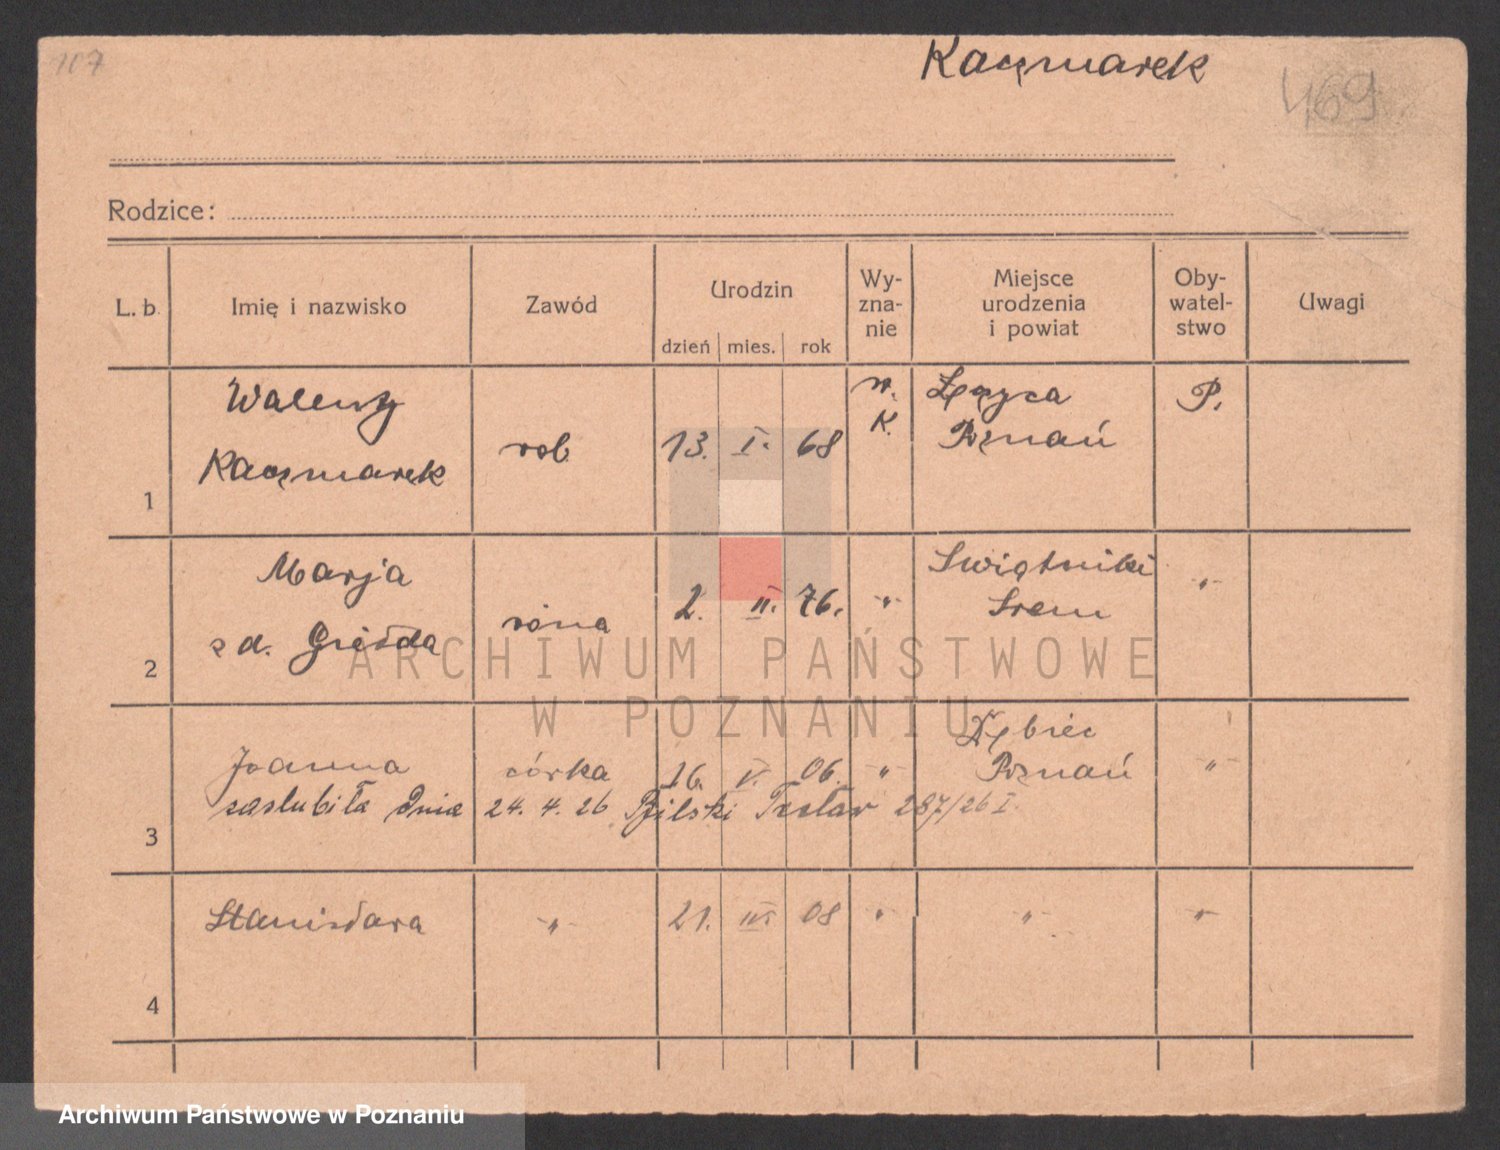 107
Kaczmarek
469
Rodzice:
L. b. Imię i nazwisko Zawód Urodzin dzień mies. rok Wy-zna-nie Miejsce urodzenia i powiat Oby-watel-stwo Uwagi
1 Walenty Kaczmarek rob. 13. I. 68 r. K. Łęczyca Poznań P.
2 Marja z d. Gzieda żona 2. II. 76. " Świątniki Śrem "
3 Joanna córka 16. V. 06. " Dębiec Poznań "
zaślubiła dnia 24. 4. 26 287/26 I
4 Stanisława " 21. III 08 " " "
ARCHIWUM PAŃSTWOWE
W POZNANIU
Archiwum Państwowe w Poznaniu